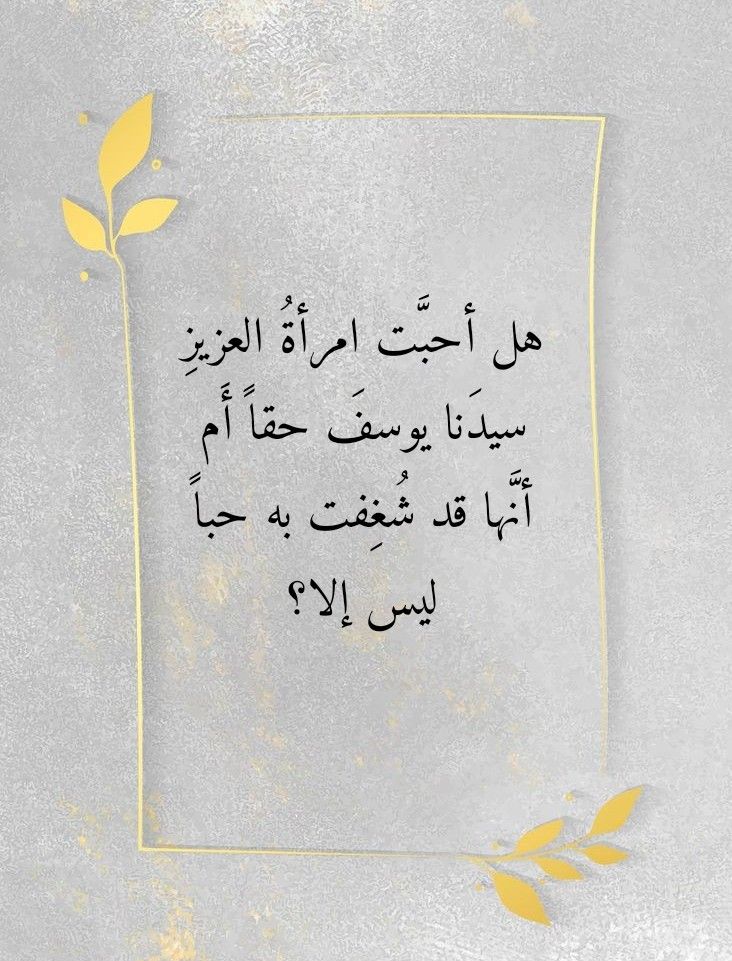 هل أحبَّت امرأةُ العزيزِ
سيدَنا يوسفَ حقاً أَم
أنَّها قد شُغِفت به حباً
ليس إلا؟